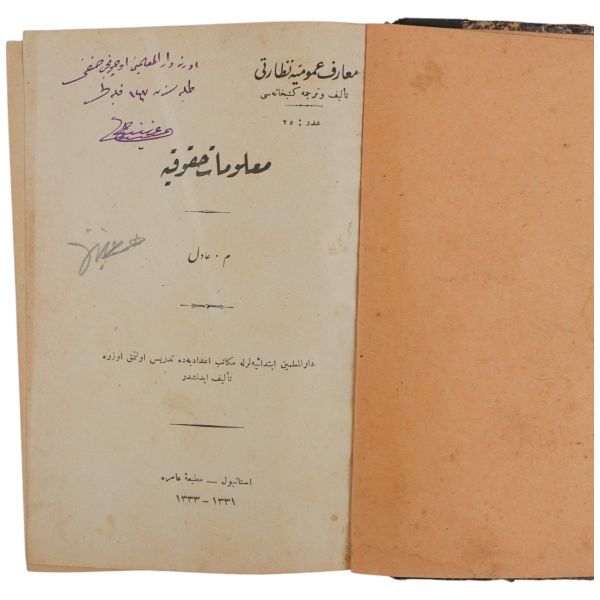 معارف عمومیه نظارتی
تألیف و ترجمه کتبخانه‌سی
عدد : ۲۵
معلومات حقوقیه
م . عادل
دارالمعلمین ابتدائیه‌لرله مکاتب اعدادیه‌ده تدریس اولنمق اوزره
تألیف ایدلمشدر
استانبول — مطبعهٔ عامره
۱۳۳۱ – ۱۳۳۳